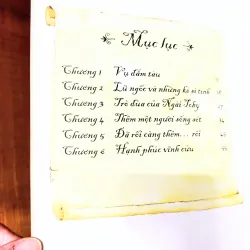 Mục lục
Chương 1 Vụ đắm tàu
Chương 2 Lũ ngốc và những kẻ si tình
Chương 3 Trò đùa của Ngài Toby
Chương 4 Thêm một người sống sót
Chương 5 Đã rối càng thêm... rối
Chương 6 Hạnh phúc vĩnh cửu